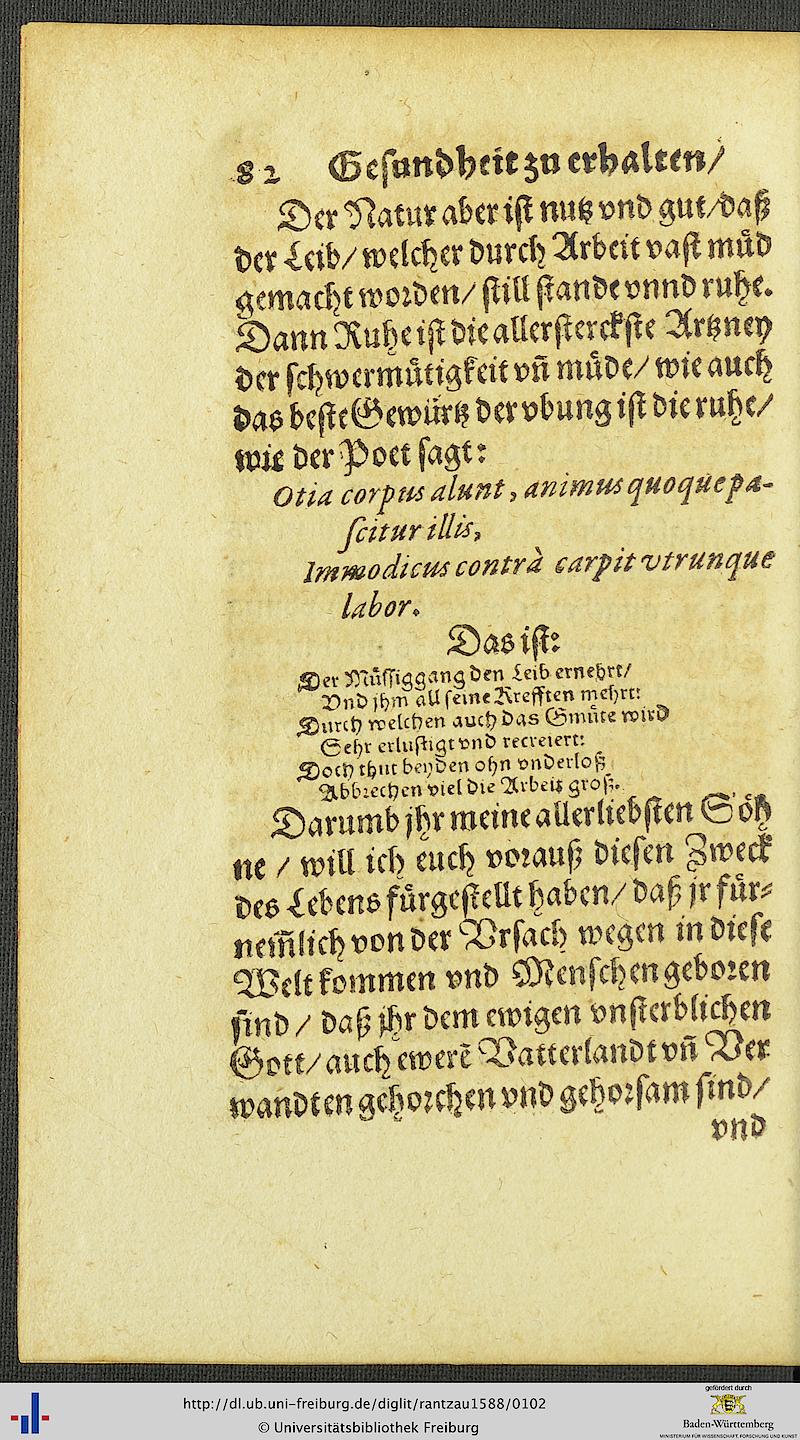 82 Gesundheit zu erhalten/
Der Natur aber ist nutz vnd gut/daß
der Leib/ welcher durch Arbeit vast müd
gemacht worden/ still stande vnnd ruhe.
Dann Ruhe ist die allersterckste Artzney
der schwermütigkeit vñ müde/ wie auch
das beste Gewürtz der vbung ist die ruhe/
wie der Poet sagt:
Otia corpus alunt, animus quoque pa-
scitur illis,
Immodicus contrà carpit vtrunque
labor.
Das ist:
Der Müssiggang den Leib ernehrt/
Vnd jhm all seine Krefften mehrt:
Durch welchen auch das Gmüte wird
Sehr erlustigt vnd recreiert:
Doch thut beyden ohn vnderloß
Abbrechen viel die Arbeit groß.
Darumb jhr meine allerliebsten Söh
ne / will ich euch vorauß diesen Zweck
des Lebens fürgestellt haben/ daß jr für-
nem̃lich von der Vrsach wegen in diese
Welt kommen vnd Menschen geboren
sind / daß jhr dem ewigen vnsterblichen
Gott/ auch ewerẽ Vatterlandt vñ Ver
wandten gehorchen vnd gehorsam sind/
vnd
http://dl.ub.uni-freiburg.de/diglit/rantzau1588/0102
© Universitätsbibliothek Freiburg
gefördert durch
Baden-Württemberg
MINISTERIUM FÜR WISSENSCHAFT, FORSCHUNG UND KUNST